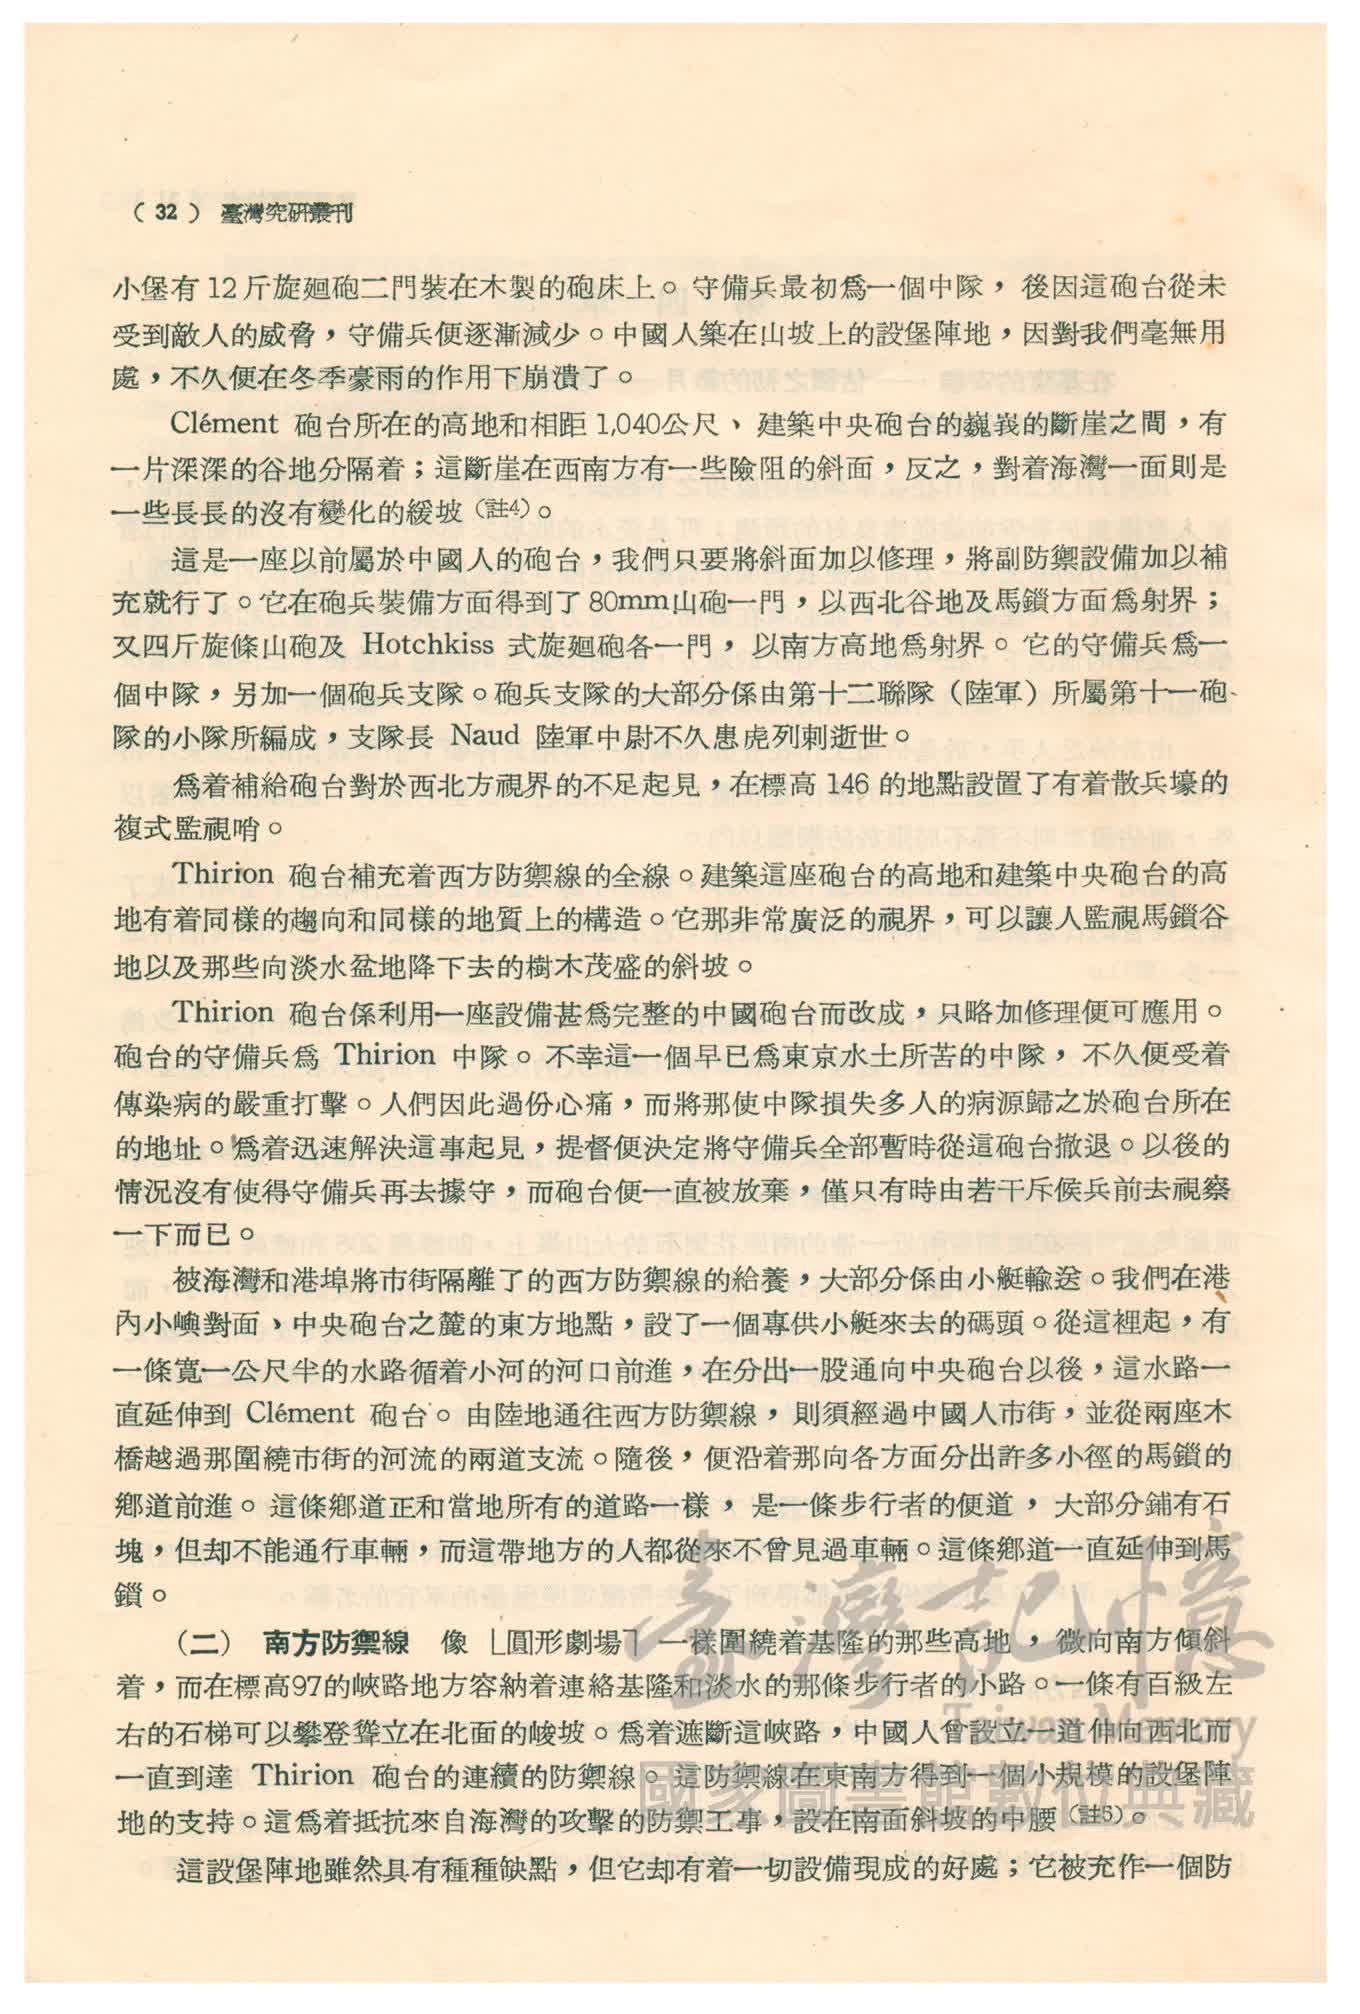 （32）臺灣究研叢刊
小堡有12斤旋廻砲二門裝在木製的砲床上。守備兵最初爲一個中隊，後因這砲台從未
受到敵人的威脅，守備兵便逐漸減少。中國人築在山坡上的設堡陣地，因對我們毫無用
處，不久便在冬季豪雨的作用下崩潰了。
Clément 砲台所在的高地和相距1,040公尺、建築中央砲台的巍峩的斷崖之間，有
一片深深的谷地分隔着；這斷崖在西南方有一些險阻的斜面，反之，對着海灣一面則是
一些長長的沒有變化的緩坡（註4）。
這是一座以前屬於中國人的砲台，我們只要將斜面加以修理，將副防禦設備加以補
充就行了。它在砲兵裝備方面得到了80mm山砲一門，以西北谷地及馬鎖方面爲射界；
又四斤旋條山砲及 Hotchkiss 式旋廻砲各一門，以南方高地爲射界。它的守備兵爲一
個中隊，另加一個砲兵支隊。砲兵支隊的大部分係由第十二聯隊（陸軍）所屬第十一砲
隊的小隊所編成，支隊長 Naud 陸軍中尉不久患虎列刺逝世。
爲着補給砲台對於西北方視界的不足起見，在標高146的地點設置了有着散兵壕的
複式監視哨。
Thirion 砲台補充着西方防禦線的全線。建築這座砲台的高地和建築中央砲台的高
地有着同樣的趨向和同樣的地質上的構造。它那非常廣泛的視界，可以讓人監視馬鎖谷
地以及那些向淡水盆地降下去的樹木茂盛的斜坡。
Thirion 砲台係利用一座設備甚爲完整的中國砲台而改成，只略加修理便可應用。
砲台的守備兵爲 Thirion 中隊。不幸這一個早已爲東京水土所苦的中隊，不久便受着
傳染病的嚴重打擊。人們因此過份心痛，而將那使中隊損失多人的病源歸之於砲台所在
的地址。爲着迅速解決這事起見，提督便決定將守備兵全部暫時從這砲台撤退。以後的
情況沒有使得守備兵再去據守，而砲台便一直被放棄，僅只有時由若干斥候兵前去視察
一下而已。
被海灣和港埠將市街隔離了的西方防禦線的給養，大部分係由小艇輸送。我們在港
內小嶼對面、中央砲台之麓的東方地點，設了一個專供小艇來去的碼頭。從這裡起，有
一條寬一公尺半的水路循着小河的河口前進，在分出一股通向中央砲台以後，這水路一
直延伸到 Clément 砲台。由陸地通往西方防禦線，則須經過中國人市街，並從兩座木
橋越過那圍繞市街的河流的兩道支流。隨後，便沿着那向各方面分出許多小徑的馬鎖的
鄉道前進。這條鄉道正和當地所有的道路一樣，是一條步行者的便道，大部分鋪有石
塊，但却不能通行車輛，而這帶地方的人都從來不曾見過車輛。這條鄉道一直延伸到馬
鎖。
（二）南方防禦線　像「圓形劇場」一樣圍繞着基隆的那些高地，微向南方傾斜
着，而在標高97的峽路地方容納着連絡基隆和淡水的那條步行者的小路。一條有百級左
右的石梯可以攀登聳立在北面的峻坡。爲着遮斷這峽路，中國人曾設立一道伸向西北而
一直到達 Thirion 砲台的連續的防禦線。這防禦線在東南方得到一個小規模的設堡陣
地的支持。這爲着抵抗來自海灣的攻擊的防禦工事，設在南面斜坡的中腰（註5）。
這設堡陣地雖然具有種種缺點，但它却有着一切設備現成的好處；它被充作一個防
臺灣記憶
Taiwan Memory
國家圖書館數位典藏